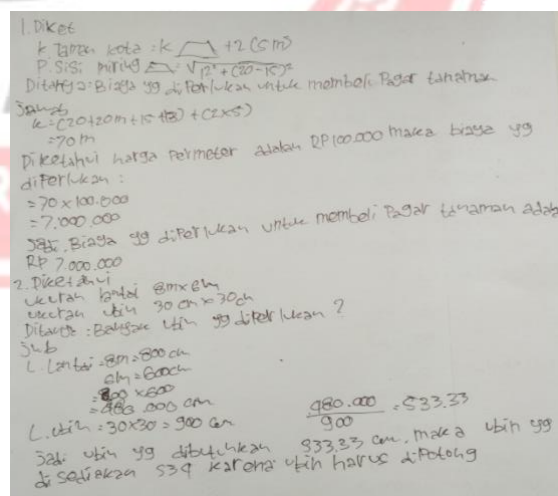 1. Diket
k Taman kota = k + 2 (5 m)
P. Sisi miring = √12² + (20-15)²
Ditanya: Biaya yg diperlukan untuk membeli Pagar tanaman
Jawab
k = (20+20m+15+13) + (2x5)
= 70 m
Diketahui harga Permeter adalah RP 100.000 maka biaya yg
diperlukan :
= 70 x 100.000
= 7.000.000
Jadi. Biaya yg diperlukan untuk membeli Pagar tanaman adalah
RP 7.000.000
2. Diketahui
ukuran lantai 8m x 6m
ukuran ubin 30 cm x 30 cm
Ditanya : Banyak ubin yg diperlukan ?
Jwb
L. Lantai = 8m = 800 cm
6m = 600 cm
= 800 x 600
= 480.000 cm
L. ubin = 30x30 = 900 cm
480.000 / 900 = 533.33
Jadi ubin yg dibutuhkan 533.33 cm, maka ubin yg
di sediakan 534 karena ubin harus dipotong